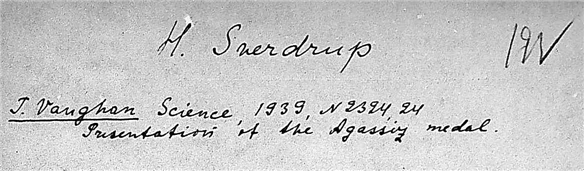 H. Sverdrup
T. Vaughan Science, 1939, N2324, 24
Presentation of the Agassiz medal.